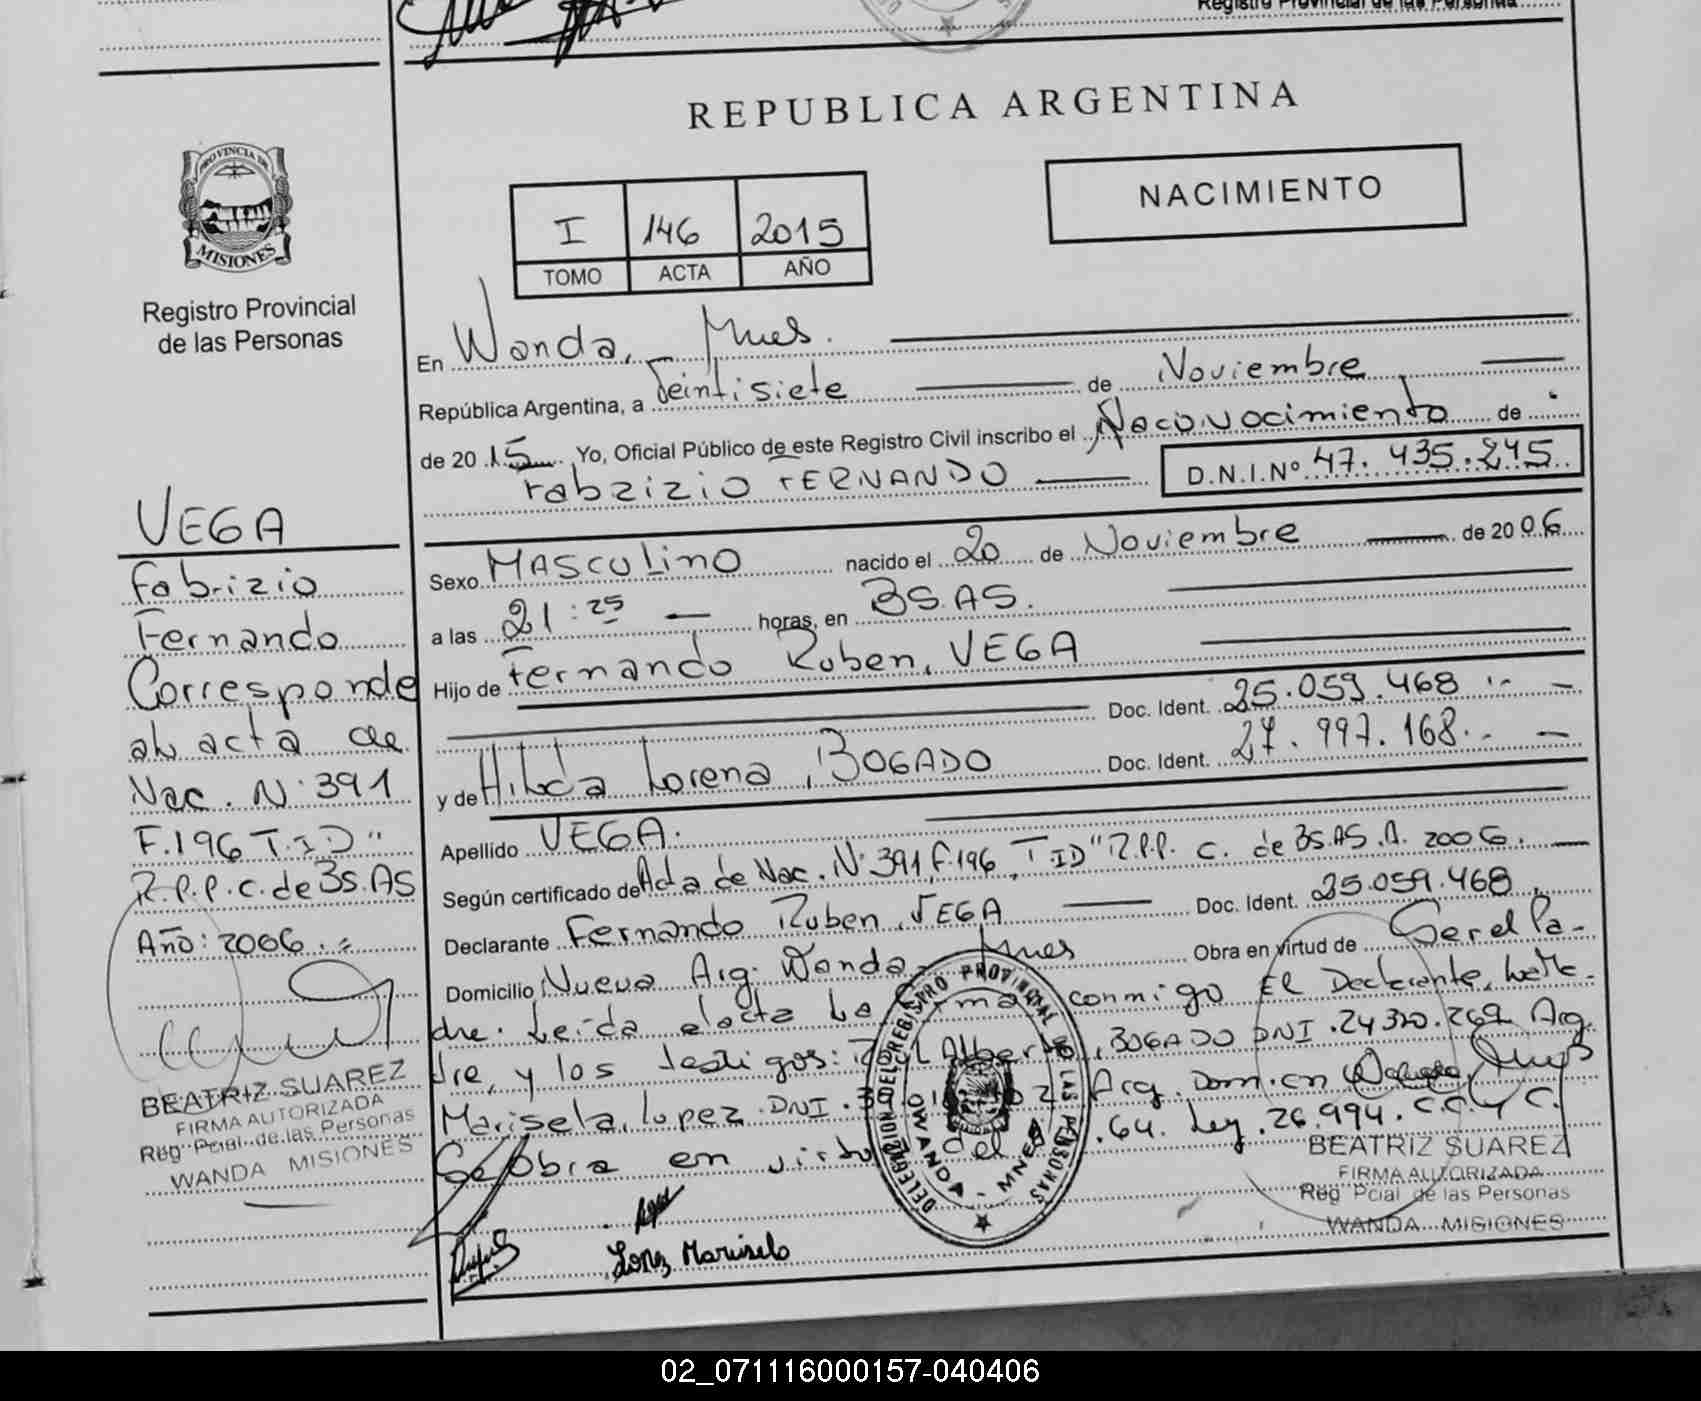 Registro Provincial de las Personas
REPUBLICA ARGENTINA
PROVINCIA DE
MISIONES
Registro Provincial
de las Personas
I 146 2015
TOMO ACTA AÑO
NACIMIENTO
En Wanda, Mnes.
República Argentina, a Veintisiete de Noviembre
de 2015 Yo, Oficial Público de este Registro Civil inscribo el de
Fabrizio FERNANDO D.N.I.Nº 47.435.245
Sexo MASCULINO nacido el 20 de Noviembre de 2006
a las 21:25 horas, en BS.AS.
Hijo de Fernando Ruben, VEGA
Doc. Ident. 25.059.468
y de Hilda Lorena, BOGADO Doc. Ident. 27.997.168
Apellido VEGA.
Según certificado de Acta de Nac. Nº 391 F.196, T ID" R.P.P. C. de BS.AS. A. 2006.
Declarante Fernando Ruben, VEGA Doc. Ident. 25.059.468
Domicilio Nueva Arg. Wanda Mnes Obra en virtud de Ser el Pa-
dre. Leida el acta la conmigo El Declarante, la Ma-
dre, y los testigos: Alberto, BOGADO DNI.24320.269 Arg.
Marisela, Lopez. DNI. Arg. Dom. en Wanda, Mnes
Se Obra en virtud del .64. Ley. 26.994. C.C. y C.
VEGA
Fabrizio
Fernando
Corresponde
al acta de
Nac. Nº 391
F.196 T.ID"
R.P.P.C. de BS.AS
Año: 2006.
BEATRIZ SUAREZ
FIRMA AUTORIZADA
Reg Pcial de las Personas
WANDA MISIONES
DELEGACION DEL REGISTRO PROVINCIAL DE LAS PERSONAS
WANDA - MNES
Lopez Marisela
BEATRIZ SUAREZ
FIRMA AUTORIZADA
Reg Pcial de las Personas
WANDA MISIONES
02_071116000157-040406